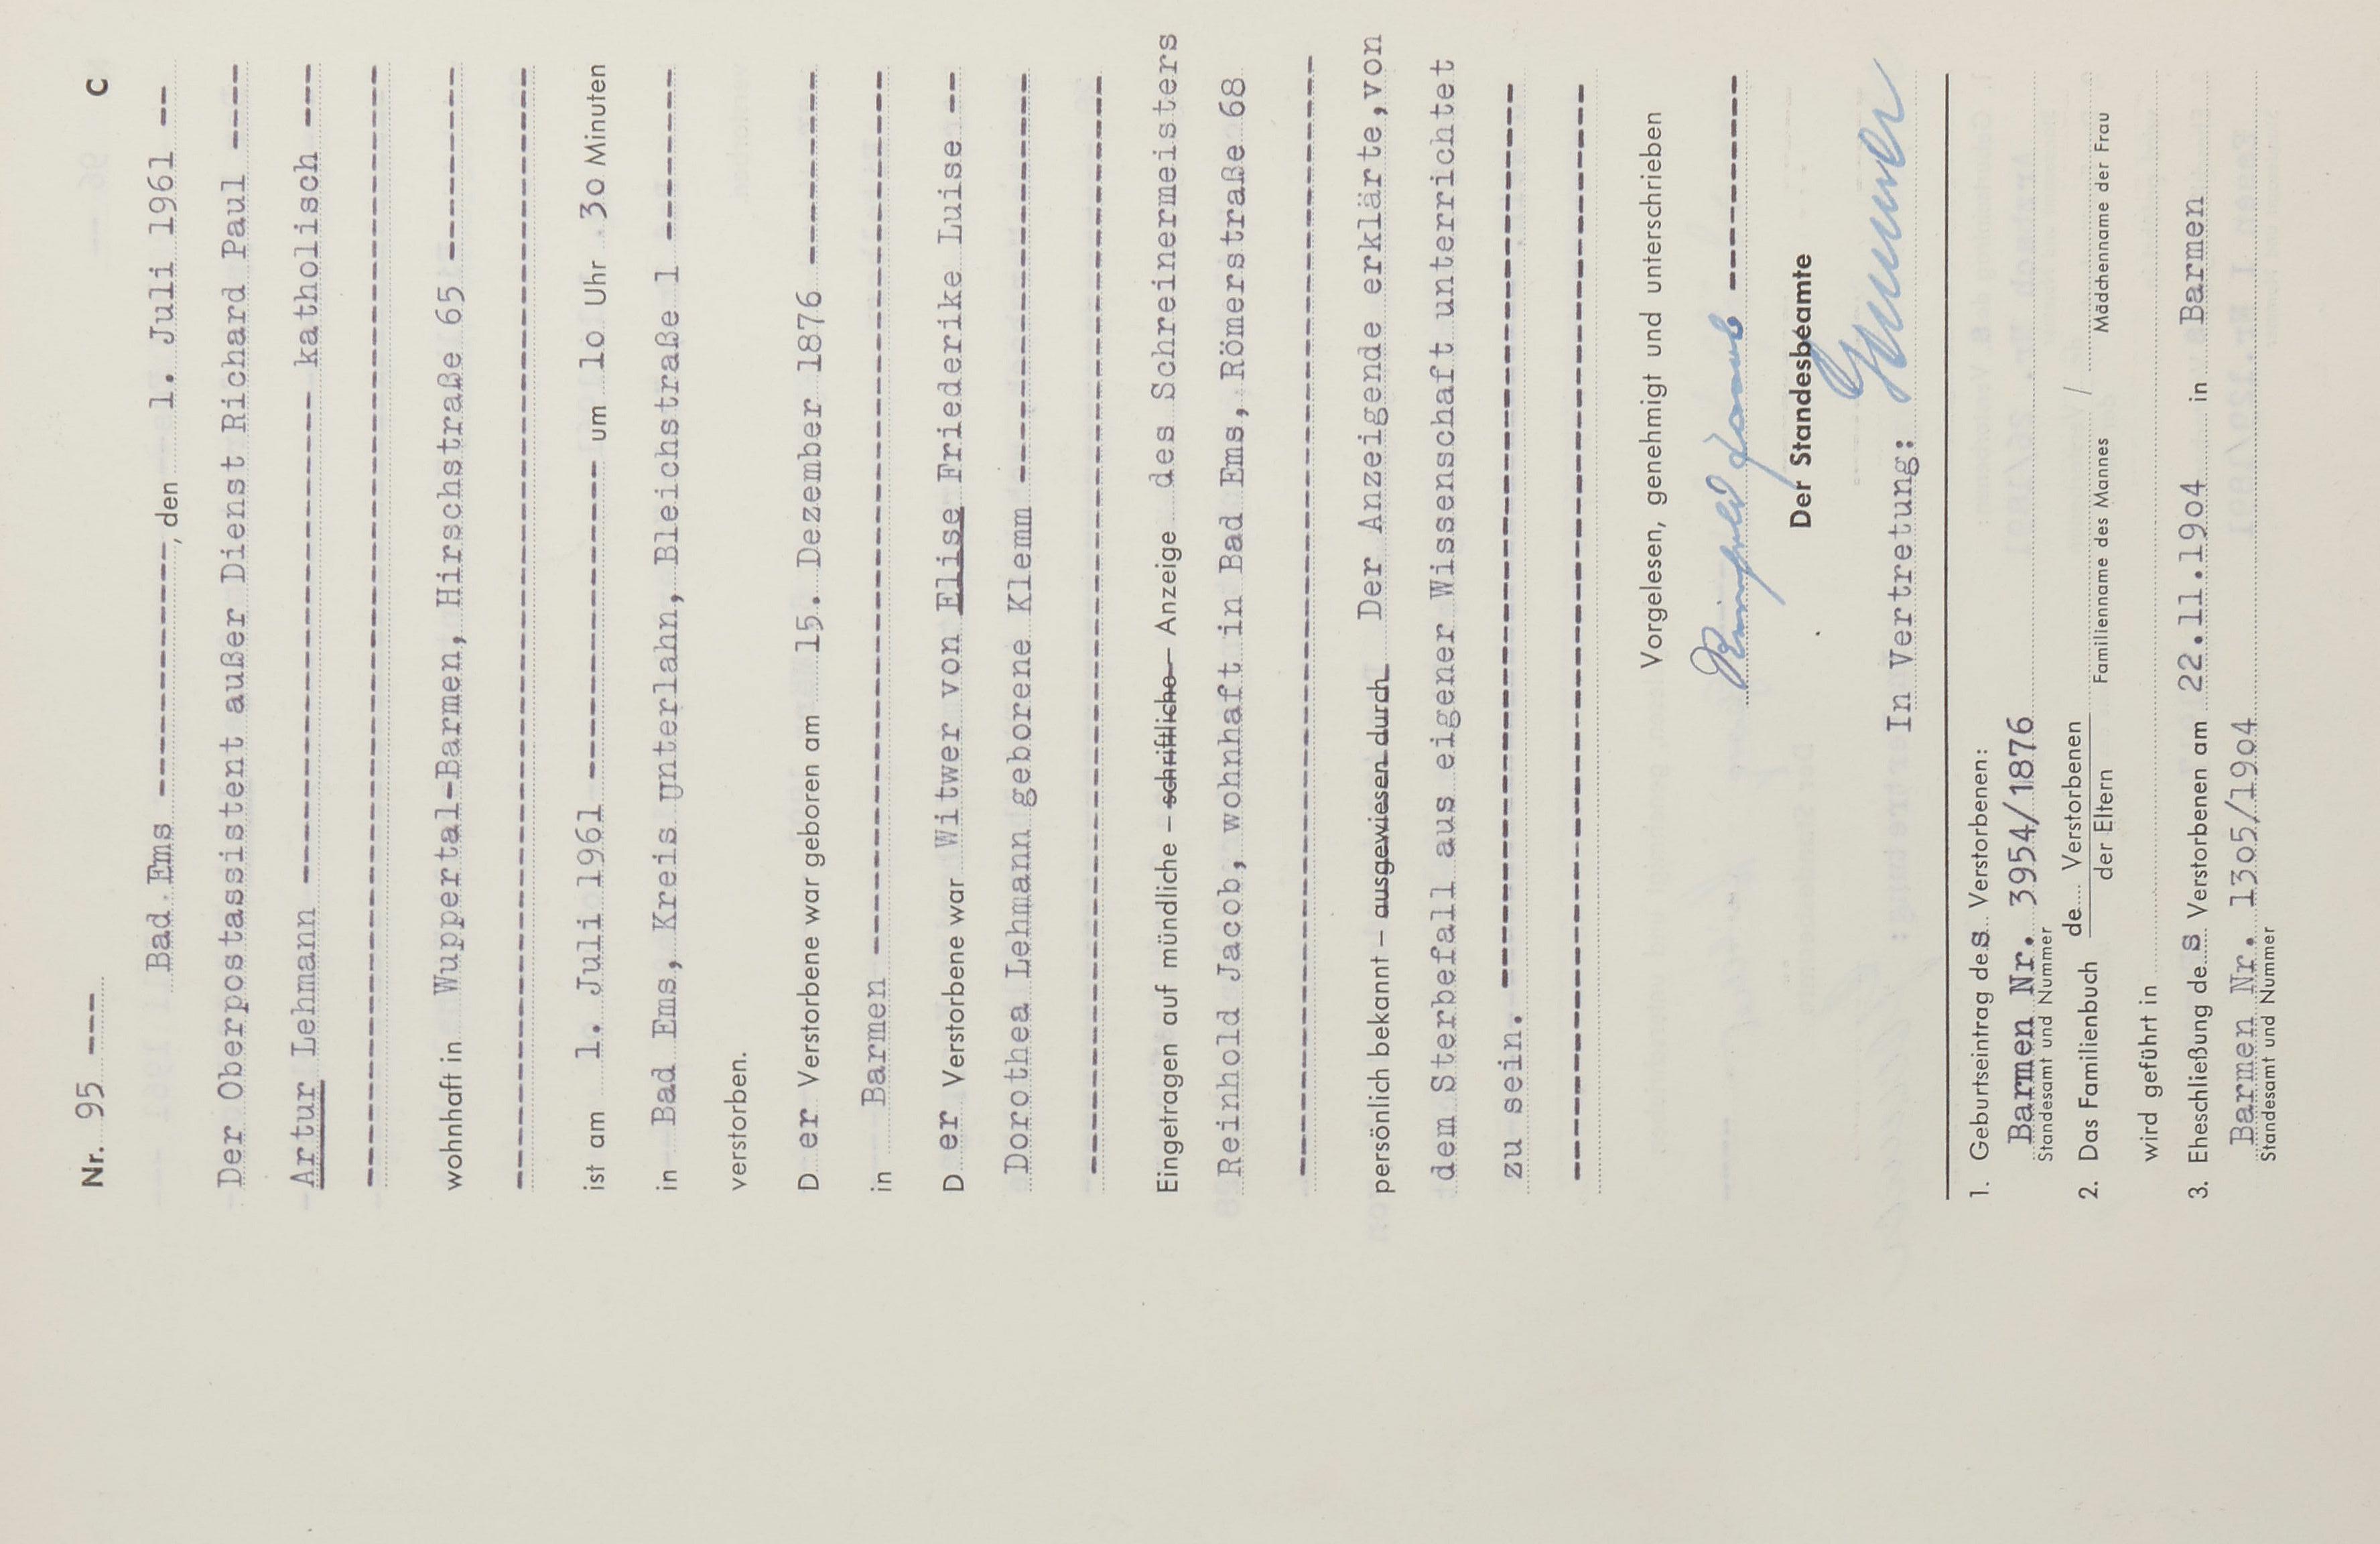 Nr. 95 --- C
Bad Ems ------------, den 1. Juli 1961 --
Der Oberpostassistent außer Dienst Richard Paul ----
Artur Lehmann ------------------------ katholisch ---
------------------------------------------------------
wohnhaft in Wuppertal-Barmen, Hirschstraße 65 ---------
------------------------------------------------------
ist am 1. Juli 1961 --------------- um 10 Uhr 30 Minuten
in Bad Ems, Kreis Unterlahn, Bleichstraße 1 --------
verstorben.
D er Verstorbene war geboren am 15. Dezember 1876 ---------
in Barmen ------------------------------------------
D er Verstorbene war Witwer von Elise Friederike Luise --
Dorothea Lehmann geborene Klemm --------------------
----------------------------------------------------
Eingetragen auf mündliche – schriftliche – Anzeige des Schreinermeisters
Reinhold Jacob, wohnhaft in Bad Ems, Römerstraße 68
-----------------------------------------------------
persönlich bekannt – ausgewiesen durch Der Anzeigende erklärte, von
dem Sterbefall aus eigener Wissenschaft unterrichtet
zu sein. -------------------------------------------
----------------------------------------------------
Vorgelesen, genehmigt und unterschrieben
Reinhold Jacob ----------
Der Standesbeamte
In Vertretung:
1. Geburtseintrag des Verstorbenen:
Barmen Nr. 3954/1876
Standesamt und Nummer
2. Das Familienbuch de Verstorbenen / der Eltern
Familienname des Mannes Mädchenname der Frau
wird geführt in
3. Eheschließung des Verstorbenen am 22.11.1904 in Barmen
Barmen Nr. 1305/1904
Standesamt und Nummer